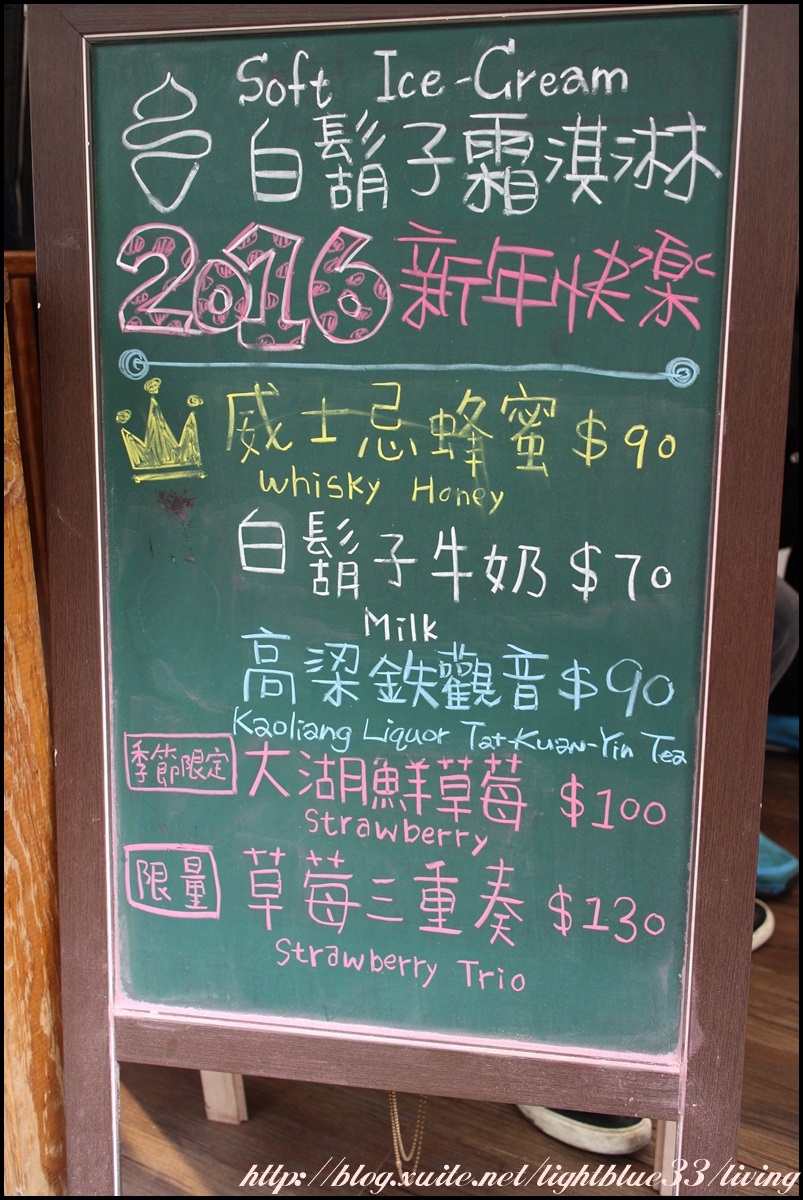 Soft Ice-Cream
白鬍子霜淇淋
2016新年快樂
威士忌蜂蜜 $90
Whisky Honey
白鬍子牛奶 $70
Milk
高梁鉄觀音 $90
Kaoliang Liquor Tat-Kuan-Yin Tea
季節限定 大湖鮮草莓 $100
Strawberry
限量 草莓三重奏 $130
Strawberry Trio
http://blog.xuite.net/lightblue33/living